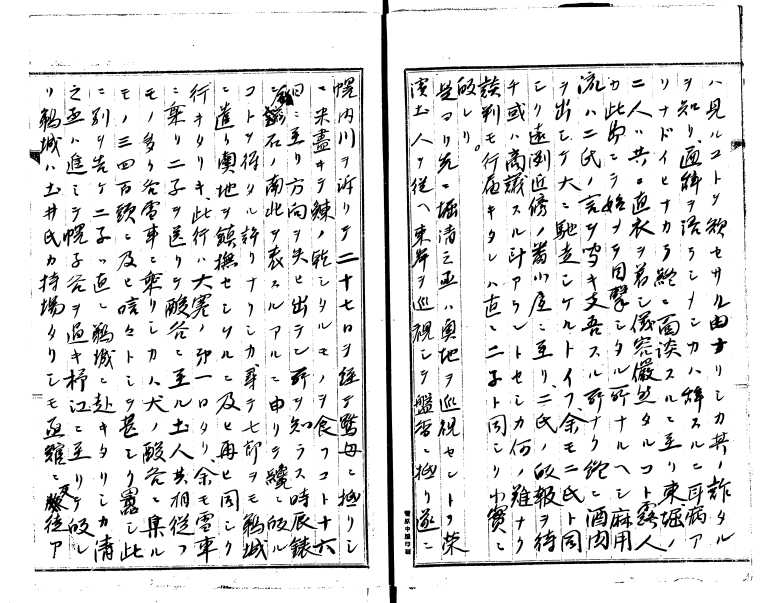 ハ見ルコトヲ欲セサル由ナリシカ其ノ詐タル
ヲ知リ直緯ヲ語ラシメシカハ緯スルニ耳病ア
リナドイヒナカラ終ニ面談スルニ至リ東堀ノ
二人ハ共ニ直衣ヲ著シ儀容儼然タルコト露人
カ此節ニテ始メテ目撃シタル所ナルヘシ麻用
流ハ二氏ノ言ヲ
ヲ出シケ大ニ馳走シケルトイフ余モ二氏ト同
シク遠淵近傍ノ小屋ニ至リ二氏ノ故報ヲ待
チ或ハ商議スル計アラントセシカ何ノ難ナク
談判モ行届キタレハ直ニ二子ト同シク小實ニ
皈レリ
是ヨリ先ニ堀清之丞ハ奥地ヲ巡視セントテ榮
濱土人ヲ従ヘ東岸ヲ巡視シテ盤
幌内川ヲ泝リテ二十七日ヲ經テ
ニ米盡キテ鰊ノ乾シタルモノヲ食フコト十六
日ニ至リ方向ヲ失ヒ出ラン所ヲ知ラス時辰錶
ニ磁石ノ南北ヲ表スルアルニ由リテ纔ニ皈ル
コトヲ得タル許リナリシカ尋テ七郎ヲモ鵜城
ニ遣リ奥地ヲ鎮撫セシムルニ及ヒ再ヒ同シク
行キタリキ此行ハ大寒ノ第一日タリ余モ雪車
ニ乗リ二子ヲ送リテ酸谷ニ至ル土人共相従フ
モノ多ク各雪車ニ乗リシカハ犬ノ酸谷ニ集ル
モノ三四百頭ニ及ヒ哢々トシテ甚シク囂シ此
ニ別ヲ告ケ二子ハ直ニ鵜城ニ赴キタリシカ清
之丞ハ進ミテ幌子谷ヲ過キ杼江ニ至リテ皈レ
リ鵜城ハ土井氏カ持場タリシモ